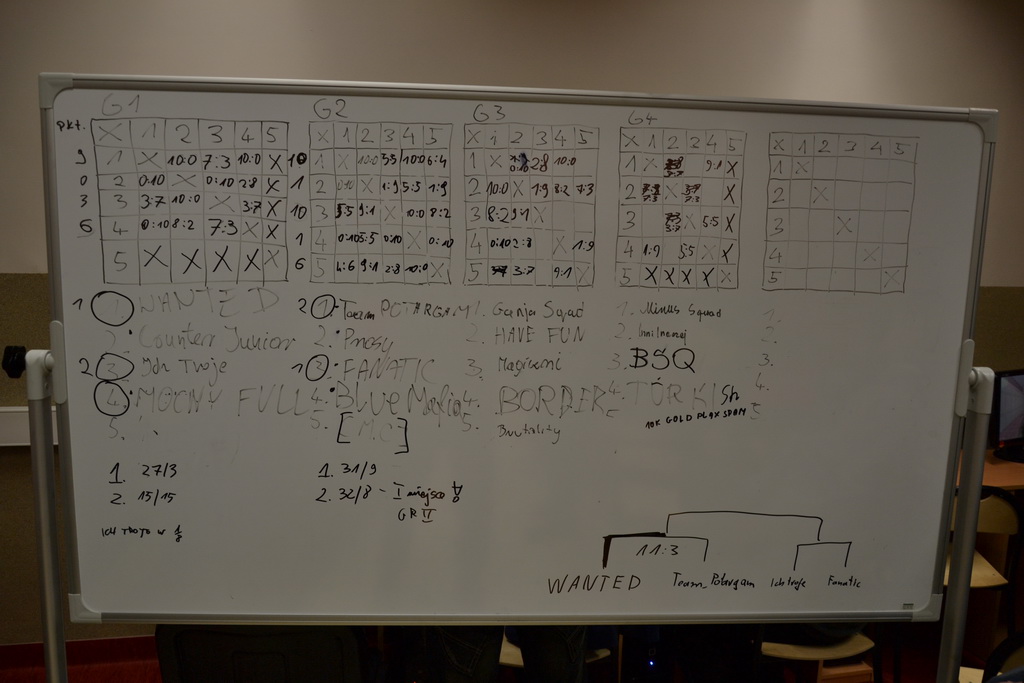 G1 G2 G3 G4
pkt.
X 1 2 3 4 5
9 1 X 10:0 7:3 10:0 X
0 2 0:10 X 0:10 2:8 X
3 3 3:7 10:0 X 3:7 X
6 4 0:10 8:2 7:3 X X
5 X X X X X
X 1 2 3 4 5
10 1 X 10:0 5:5 10:0 6:4
1 2 0:10 X 1:9 5:5 1:9
10 3 5:5 9:1 X 10:0 8:2
1 4 0:10 5:5 0:10 X 0:10
6 5 4:6 9:1 2:8 10:0 X
X 1 2 3 4 5
1 X 0:10 2:8 10:0
2 10:0 X 1:9 8:2 7:3
3 8:2 9:1 X
4 0:10 2:8 X 1:9
5 3:7 9:1 X
X 1 2 3 4 5
1 X 9:1 X
2 X X
3 X 5:5 X
4 1:9 5:5 X X
5 X X X X X
X 1 2 3 4 5
1 X
2 X
3 X
4 X
5 X
1 1. WANTED
2. Counter Junior
2 3. Ich Troje
4. MOCNY FULL
5.
2 1. Team POTARGAM
2. Prosy
1 3. FANATIC
4. Blue Mafia
5. [M.C]
1. Ganja Squad
2. HAVE FUN
3. Magicumi
4. BORDER
5. Brutality
1. Minus Squad
2.
3. BSQ
4. TÖRKISh
10K GOLD PLAX SPAM
5
1.
2.
3.
4.
5
1. 27/3
2. 15/15
ICH TROJE W
1. 31/9
2. 32/8 - I miejsce !
GR II
11:3
WANTED Team_Potargam Ich troje Fanatic